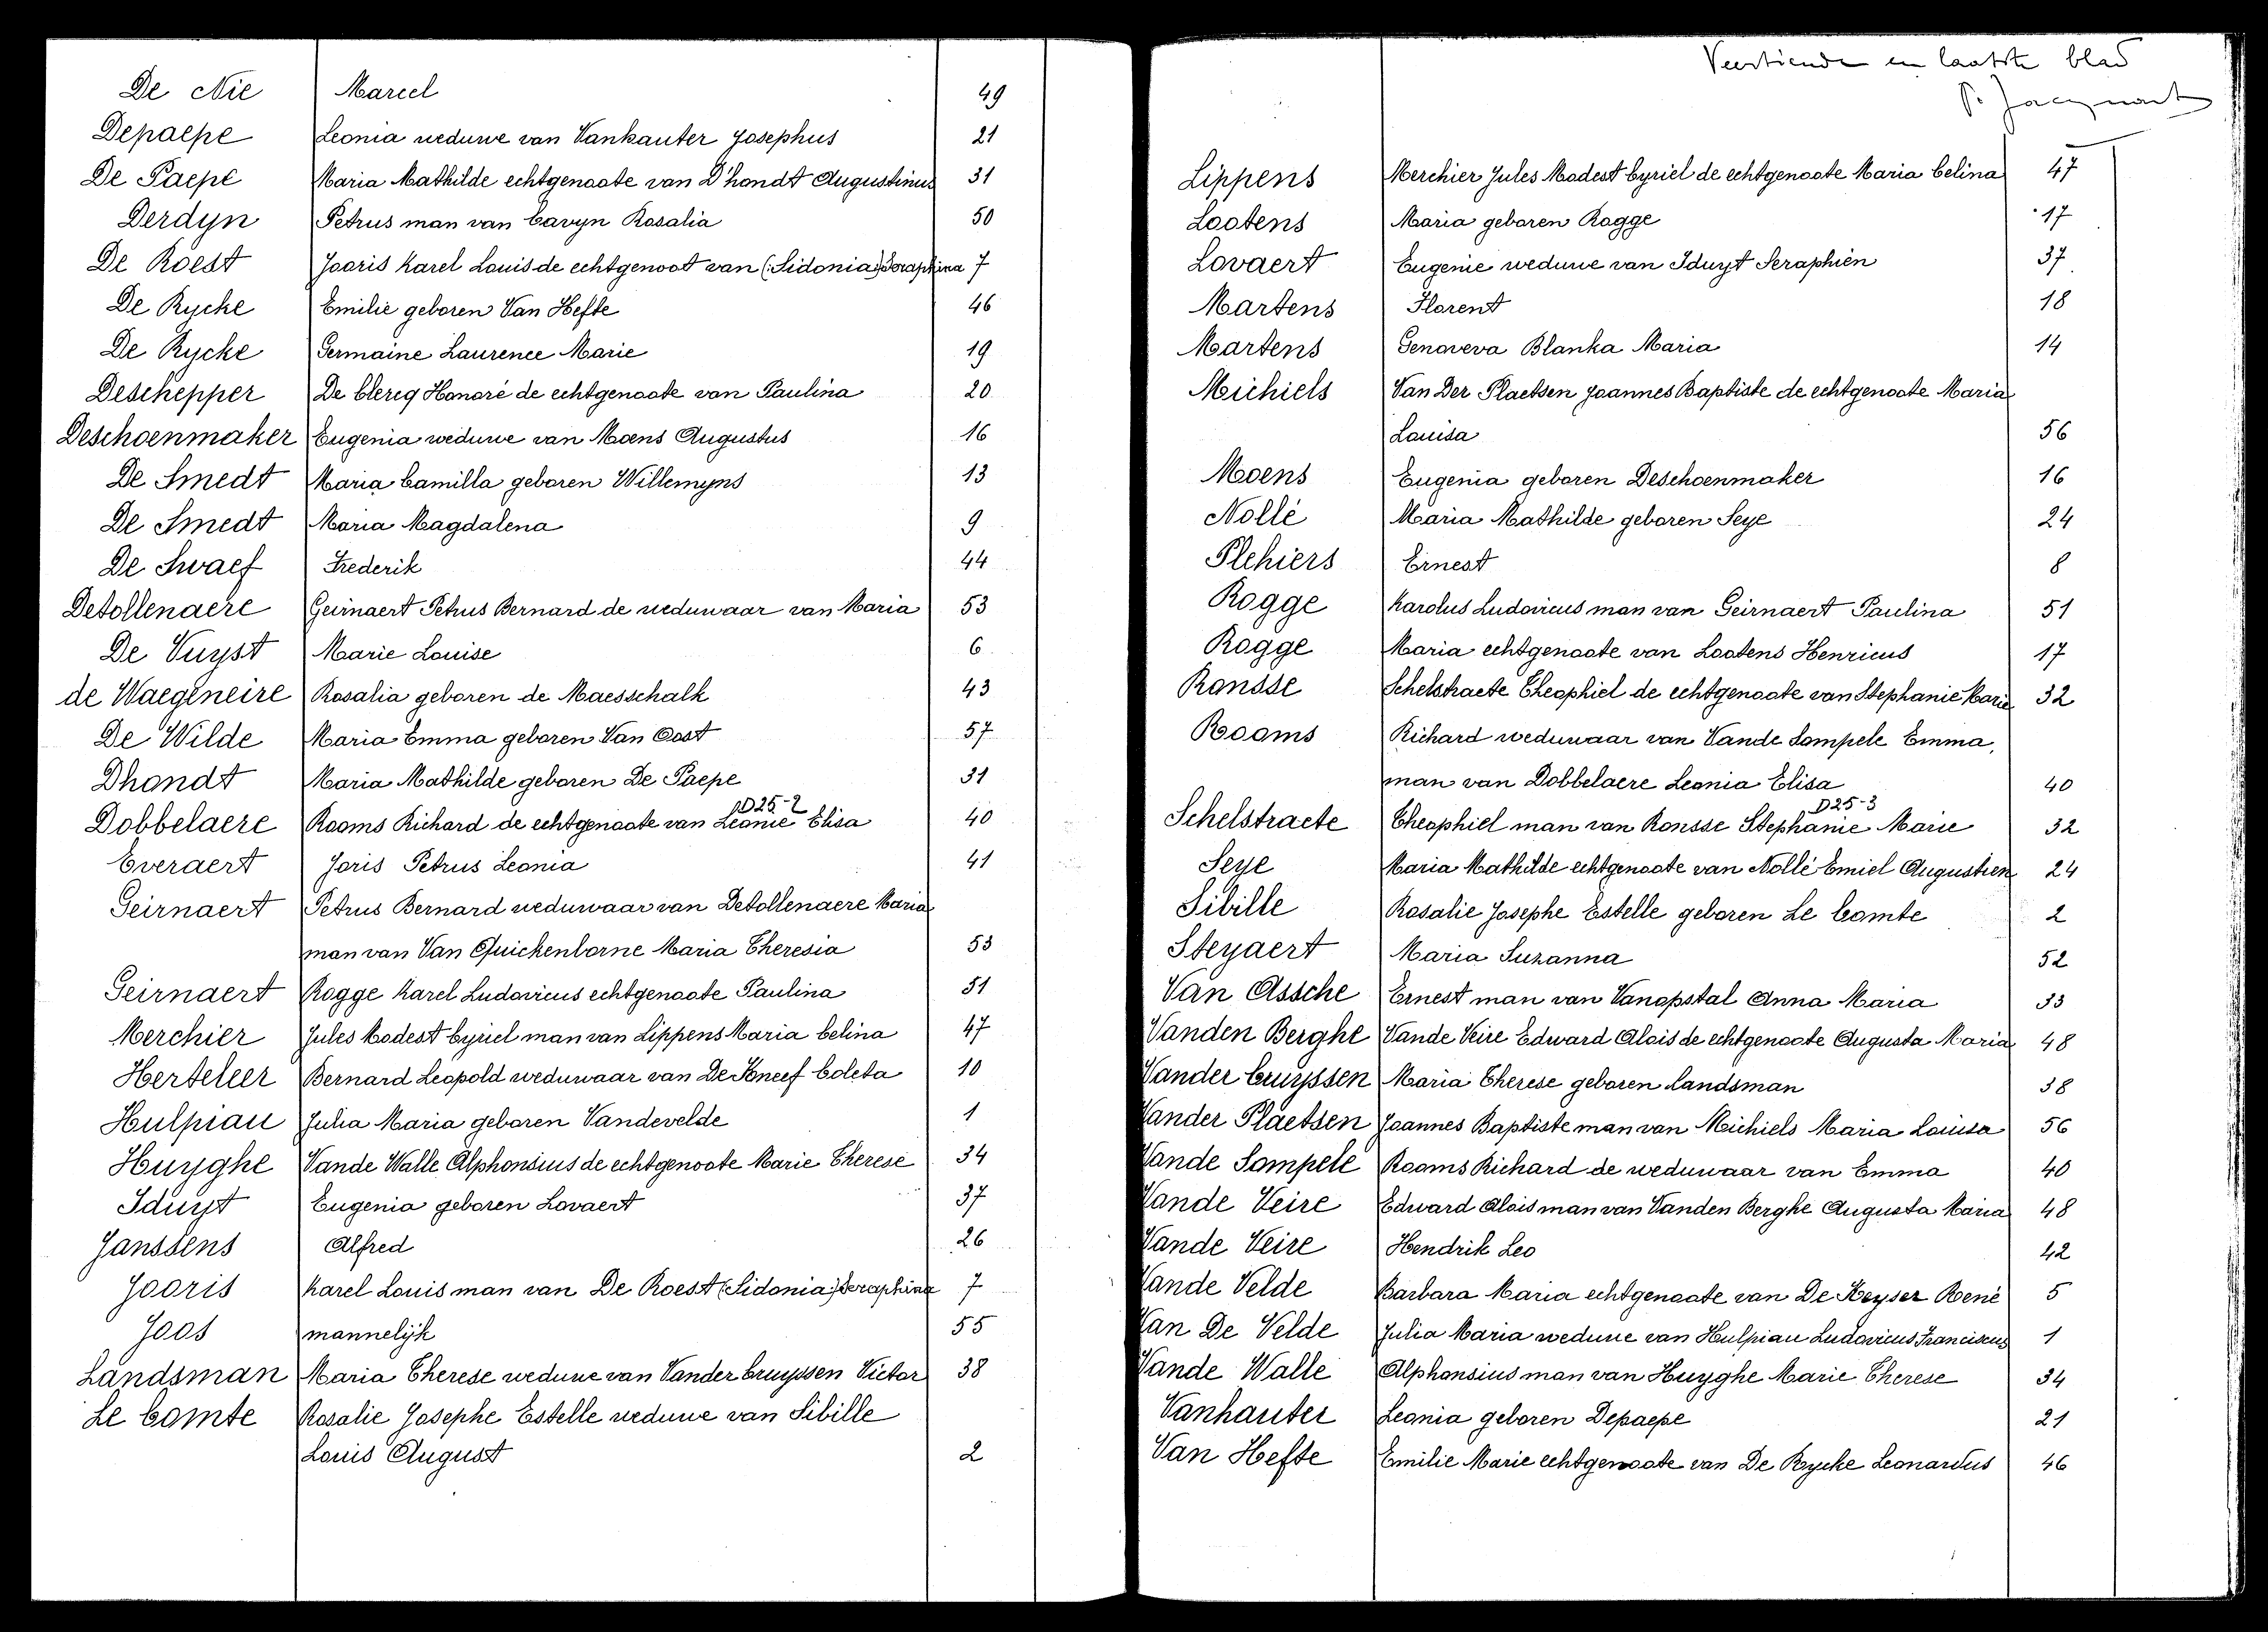 De Nie Marcel 49
Depaepe Leonia weduwe van Vankauter Josephus 21
De Paepe Maria Mathilde echtgenoote van D'hondt Augustinus 31
Derdyn Petrus man van Cavyn Rosalia 50
De Roest Jooris Karel Louis de echtgenoot van (:Sidonia:) Seraphina 7
De Rycke Emilie geboren Van Hefte 46
De Rycke Germaine Laurence Marie 19
Deschepper De Clercq Honoré de echtgenoote van Paulina 20
Deschoenmaker Eugenia weduwe van Moens Augustus 16
De Smedt Maria Camilla geboren Willemyns 13
De Smedt Maria Magdalena 9
De Swaef Frederik 44
Detollenaere Geirnaert Petrus Bernard de weduwaar van Maria 53
De Vuyst Marie Louise 6
de Waegeneire Rosalia geboren de Maesschalk 43
De Wilde Maria Emma geboren Van Oost 57
Dhondt Maria Mathilde geboren De Paepe 31
D25-2
Dobbelaere Rooms Richard de echtgenoote van Leonie Elisa 40
Everaert Joris Petrus Leonia 41
Geirnaert Petrus Bernard weduwaar van Detollenaere Maria
man van Van Quickenborne Maria Theresia 53
Geirnaert Rogge Karel Ludovicus echtgenoote Paulina 51
Merchier Jules Modest Cyriel man van Lippens Maria Celina 47
Herteleer Bernard Leopold weduwaar van De Coneef Coleta 10
Hulpiau Julia Maria geboren Vandevelde 1
Huyghe Vande Walle Alphonsius de echtgenoote Marie Therese 34
Iduyt Eugenia geboren Lovaert 37
Janssens Alfred 26
Jooris Karel Louis man van De Roest (:Sidonia:) Seraphina 7
Joos mannelijk 55
Landsman Maria Therese weduwe van Vander Cruyssen Victor 38
Le Comte Rosalie Josephe Estelle weduwe van Sibille
Louis August 2
Veertiende en laatste blad
P. Jacquart
Lippens Merchier Jules Modest Cyriel de echtgenoote Maria Celina 47
Lootens Maria geboren Rogge 17
Lovaert Eugenie weduwe van Iduyt Seraphien 37
Martens Florent 18
Martens Genoveva Blanka Maria 14
Michiels Van Der Plaetsen Joannes Baptiste de echtgenoote Maria
Louisa 56
Moens Eugenia geboren Deschoenmaker 16
Nollé Maria Mathilde geboren Seye 24
Plehiers Ernest 8
Rogge Karolus Ludovicus man van Geirnaert Paulina 51
Rogge Maria echtgenoote van Lootens Henricus 17
Ronsse Schelstraete Theophiel de echtgenoote van Stephanie Marie 32
Rooms Richard weduwaar van Vande Sompele Emma,
man van Dobbelaere Leonia Elisa 40
D25-3
Schelstraete Theophiel man van Ronsse Stephanie Marie 32
Seye Maria Mathilde echtgenoote van Nollé Emiel Augustien 24
Sibille Rosalie Josephe Estelle geboren Le Comte 2
Steyaert Maria Suzanna 52
Van Assche Ernest man van Vanopstal Anna Maria 33
Vanden Berghe Vande Veire Edward Alois de echtgenoote Augusta Maria 48
Vander Cruyssen Maria Therese geboren Landsman 38
Vander Plaetsen Joannes Baptiste man van Michiels Maria Louisa 56
Vande Sompele Rooms Richard de weduwaar van Emma 40
Vande Veire Edward Alois man van Vanden Berghe Augusta Maria 48
Vande Veire Hendrik Leo 42
Vande Velde Barbara Maria echtgenoote van De Keyser René 5
Van De Velde Julia Maria weduwe van Hulpiau Ludovicus Franciscus 1
Vande Walle Alphonsius man van Huyghe Marie Therese 34
Vanhauter Leonia geboren Depaepe 21
Van Hefte Emilie Marie echtgenoote van De Rycke Leonardus 46